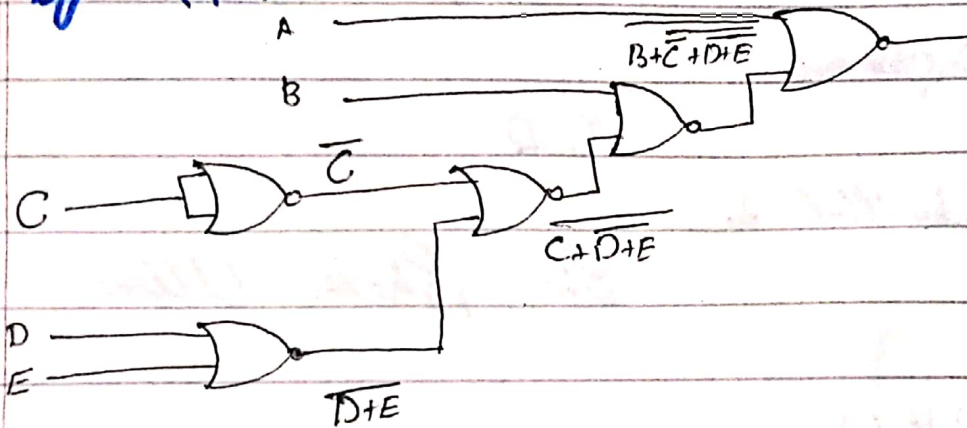 A
B+C̅+D+E
B
C̅
C
C+D+E
D
E
D+E